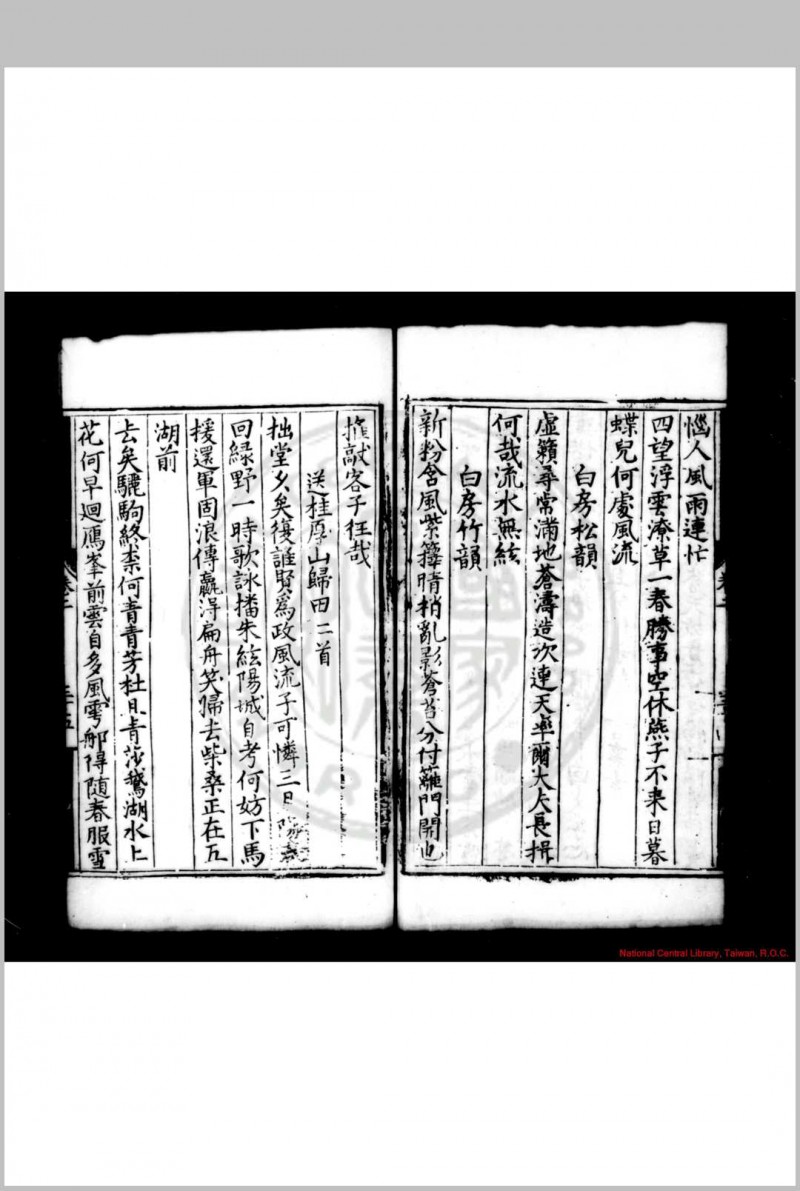 惱人風雨連忙
四望浮雲潦草一春勝事空休燕子不来日暮
蝶兒何處風流
白房松韻
虛籟尋常滿地蒼濤造次連天率爾大夫長揖
何哉流水無絃
白房竹韻
新粉含風紫籜晴梢亂影蒼苔分付籬門開也
推敲客子徃哉
送桂厚山歸田二首
拙堂久矣復誰賢爲政風流子可憐三日陽春
回緑野一時歌詠播朱絃陽城自考何妨下馬
援還軍固浪傳贏得扁舟笑歸去柴桑正在五
湖前
去矣驪駒終柰何青青芳杜日青莎鵝湖水上
花何早廻鴈峯前雲自多風雩郍得随春服雪
卷二
National Central Library, Taiwan, R.O.C.